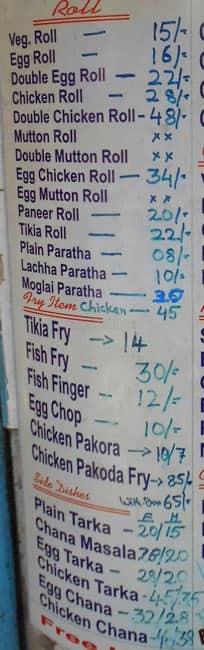 Roll
Veg. Roll — 15/-
Egg Roll — 16/-
Double Egg Roll — 22/-
Chicken Roll — 28/-
Double Chicken Roll - 48/-
Mutton Roll xx
Double Mutton Roll xx
Egg Chicken Roll — 34/-
Egg Mutton Roll xx
Paneer Roll — 20/-
Tikia Roll — 22/-
Plain Paratha — 08/-
Lachha Paratha — 10/-
Moglai Paratha — 30
Chicken — 45
Fry Item
Tikia Fry → 14
Fish Fry — 30/-
Fish Finger — 12/-
Egg Chop — 10/-
Chicken Pakora → 10/7
Chicken Pakoda Fry → 85/-
Side Dishes 65/-
F H
Plain Tarka - 20/15
Chana Masala /20
Egg Tarka - 28/20
Chicken Tarka - 45/
Egg Chana - 32/28
Chicken Chana /38
Free